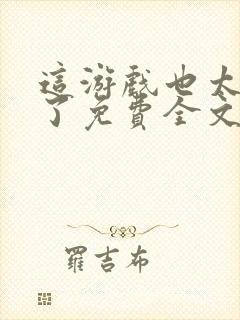 這游戲也太
了免費全文
羅吉布